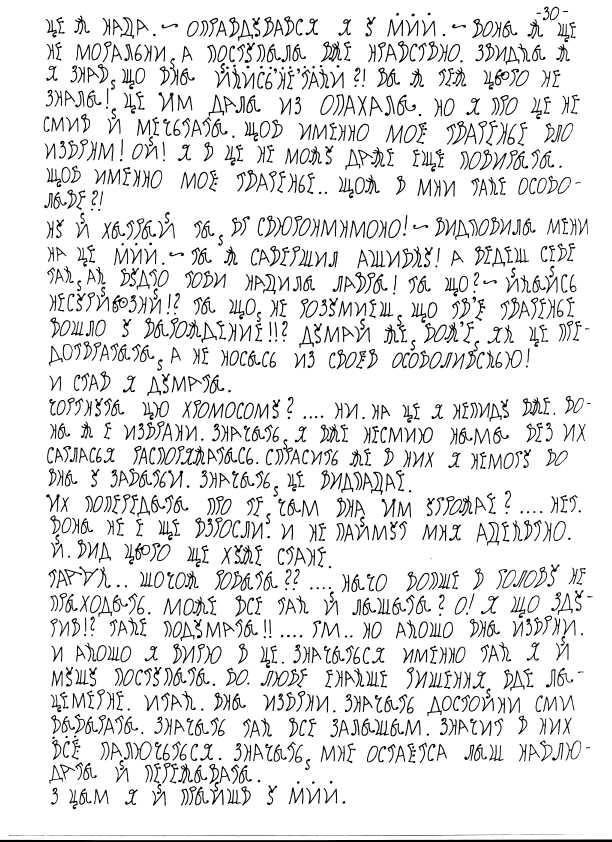 -30-
ЦЕ Ж НАЦА.~ ОПРАВДУВАВСЯ Я У МИЙ.~ ВОНЫ Ж ЩЕ
НЕ МОРАЛЬНИ, А ПОСТУПАЛЫ ВЖЕ НРАВСТВНО. ЗВИДКЫ Ж
Я ЗНАВ, ЩО ВНЫ ЙКИСЬ НЕ ТАКИ?! ВЫ Ж ТЕЖ ЦЬОГО НЕ
ЗНАЛЫ! ЦЕ ИМ ДАЛЫ ИЗ ОПАХАЛЫ. НО Я ПРО ЦЕ НЕ
СМИВ Й МЕЧЬТАТЫ. ЩОБ ИМЕННО МОЕ ТВАРЕНЬЕ БЛО
ИЗБРНМ! ОЙ! Я В ЦЕ НЕ МОЖУ ДАЖЕ ЕЩЕ ПОВИРЫТЫ.
ЩОБ ИМЕННО МОЕ ТВАРЕНЬЕ.. ЩОЖ В МНИ ТАКЕ ОСОБО-
ЛЫВЕ?!
НУ Й ХЫТРЫЙ ТЫ, БГ СВЮРОНМНМОНО!~ ВИДПОВИЛЫ МЕНИ
НА ЦЕ МИЙ.~ ТЫ Ж САВЕРШИЛ АШИБКУ! А ВЕДЕШ СЕБЕ
ТАК, АК БУДТО ТОБИ НАЦИЛЫ ЛАВРЫ! ТЫ ЩО?~ ЙКЫЙСЬ
НЕСУРЙОЗНИ!? ТЫ ЩО, НЕ РОЗУМИЕШ, ЩО ТВ'Е ТВАРЕНЬЕ
ВОШЛО У ВЫРОЖДЕНИЕ!!? ДУМАЙ ЖЕ, БОЖ'Е, ЯК ЦЕ ПРЕ-
ДОТВРАТЫТЫ, А НЕ НОСЫСЬ ИЗ СВОЕВ ОСОБОЛИВСЬЮ!
И СТАВ Я ДУМАТЫ.
ЧОРТКУТЫ ЦЮ ХРОМОСОМУ?.... НИ. НА ЦЕ Я НЕПИДУ ВЖЕ. ВО-
НЫ Ж Е ИЗБРАНИ. ЗНАЧЫТЬ, Я ВЖЕ НЕСМИЮ НЫМЫ БЕЗ ИХ
САГЛАСЬЯ РАСПОРЯЖАТЫСЬ. СПРАСИТЬ ЖЕ В НИХ Я НЕМОГУ БО
ВНЫ У ЗАБВТИИ. ЗНАЧЫТЬ, ЦЕ ВИДПАДАЕ.
ИХ ПОПЕРЕДЫТЫ ПРО ТЕ, ЧЫМ ВНА ИМ УГРОЖАЕ?.... НЕТ.
ВОНЫ НЕ Е ЩЕ ВЗРОСЛИ. И НЕ ПАЙМУТ МНЯ АДЕКВТНО.
Й. ВИД ЦЬОГО ЩЕ ХУЖЕ СТАНЕ.
ТАААК.. ШОЧОЖ РОБЫТЫ??.... НЫЧО ВОПШЕ В ГОЛОВУ НЕ
ПРЫХОДЫТЬ. МОЖЕ ВСЕ ТАК Й ЛЫШЫТЫ? О! Я ЩО ЗДУ-
РИВ!? ТАКЕ ПОДУМАТЫ!!.... ГМ.. НО АКОШО ВНЫ ИЗБРНИ.
И АКОШО Я ВИРЮ В ЦЕ. ЗНАЧЫТЬСЯ ИМЕННО ТАК Я Й
МУШУ ПОСТУПЫТЫ. БО. ЛЮБЕ ЕНАКШЕ РИШЕННЯ, БДЕ ЛЫ-
ЦЕМЕРНЕ. ИТАК. ВНЫ ИЗБРНИ. ЗНАЧЫТЬ ДОСТОЙНИ СМИ
ВЫБЫРАТЫ. ЗНАЧЫТЬ ТАК ВСЕ ЗАЛЫШЫМ. ЗНАЧИТ В НИХ
ВСЁ ПАЛЮЧЬТЬСЯ. ЗНАЧЫТЬ, МНЕ ОСТАЕТСА ЛЫШ НАБЛЮ-
ДАТЫ Й ПЕРЕЖЫВАТЫ.
З ЦЫМ Я Й ПРЫЙШВ У МИЙ.